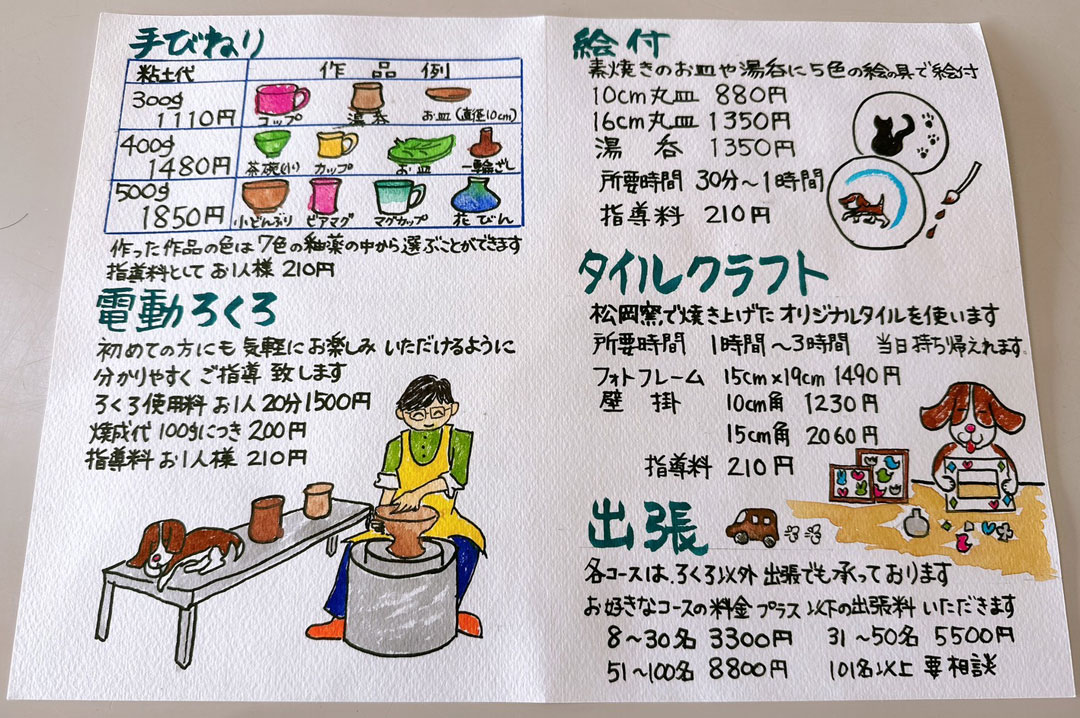 手びねり
粘土代 作品例
300g 1110円
コップ 湯呑 お皿(直径10cm)
400g 1480円
茶碗(小) カップ お皿 一輪ざし
500g 1850円
小どんぶり ビアマグ マグカップ 花びん
作った作品の色は7色の釉薬の中から選ぶことができます
指導料として お1人様 210円
電動ろくろ
初めての方にも 気軽にお楽しみ いただけるように
分かりやすく ご指導 致します
ろくろ使用料 お1人 20分 1500円
焼成代 100gにつき 200円
指導料 お1人様 210円
絵付
素焼きのお皿や湯呑に5色の絵の具で絵付
10cm丸皿 880円
16cm丸皿 1350円
湯呑 1350円
所要時間 30分〜1時間
指導料 210円
タイルクラフト
松岡窯で焼き上げた オリジナルタイルを使います
所要時間 1時間〜3時間 当日持ち帰えれます。
フォトフレーム 15cm×19cm 1490円
壁掛 10cm角 1230円
15cm角 2060円
指導料 210円
出張
各コースは、ろくろ以外 出張でも承っております
お好きなコースの料金 プラス 以下の出張料 いただきます
8〜30名 3300円 31〜50名 5500円
51〜100名 8800円 101名以上 要相談